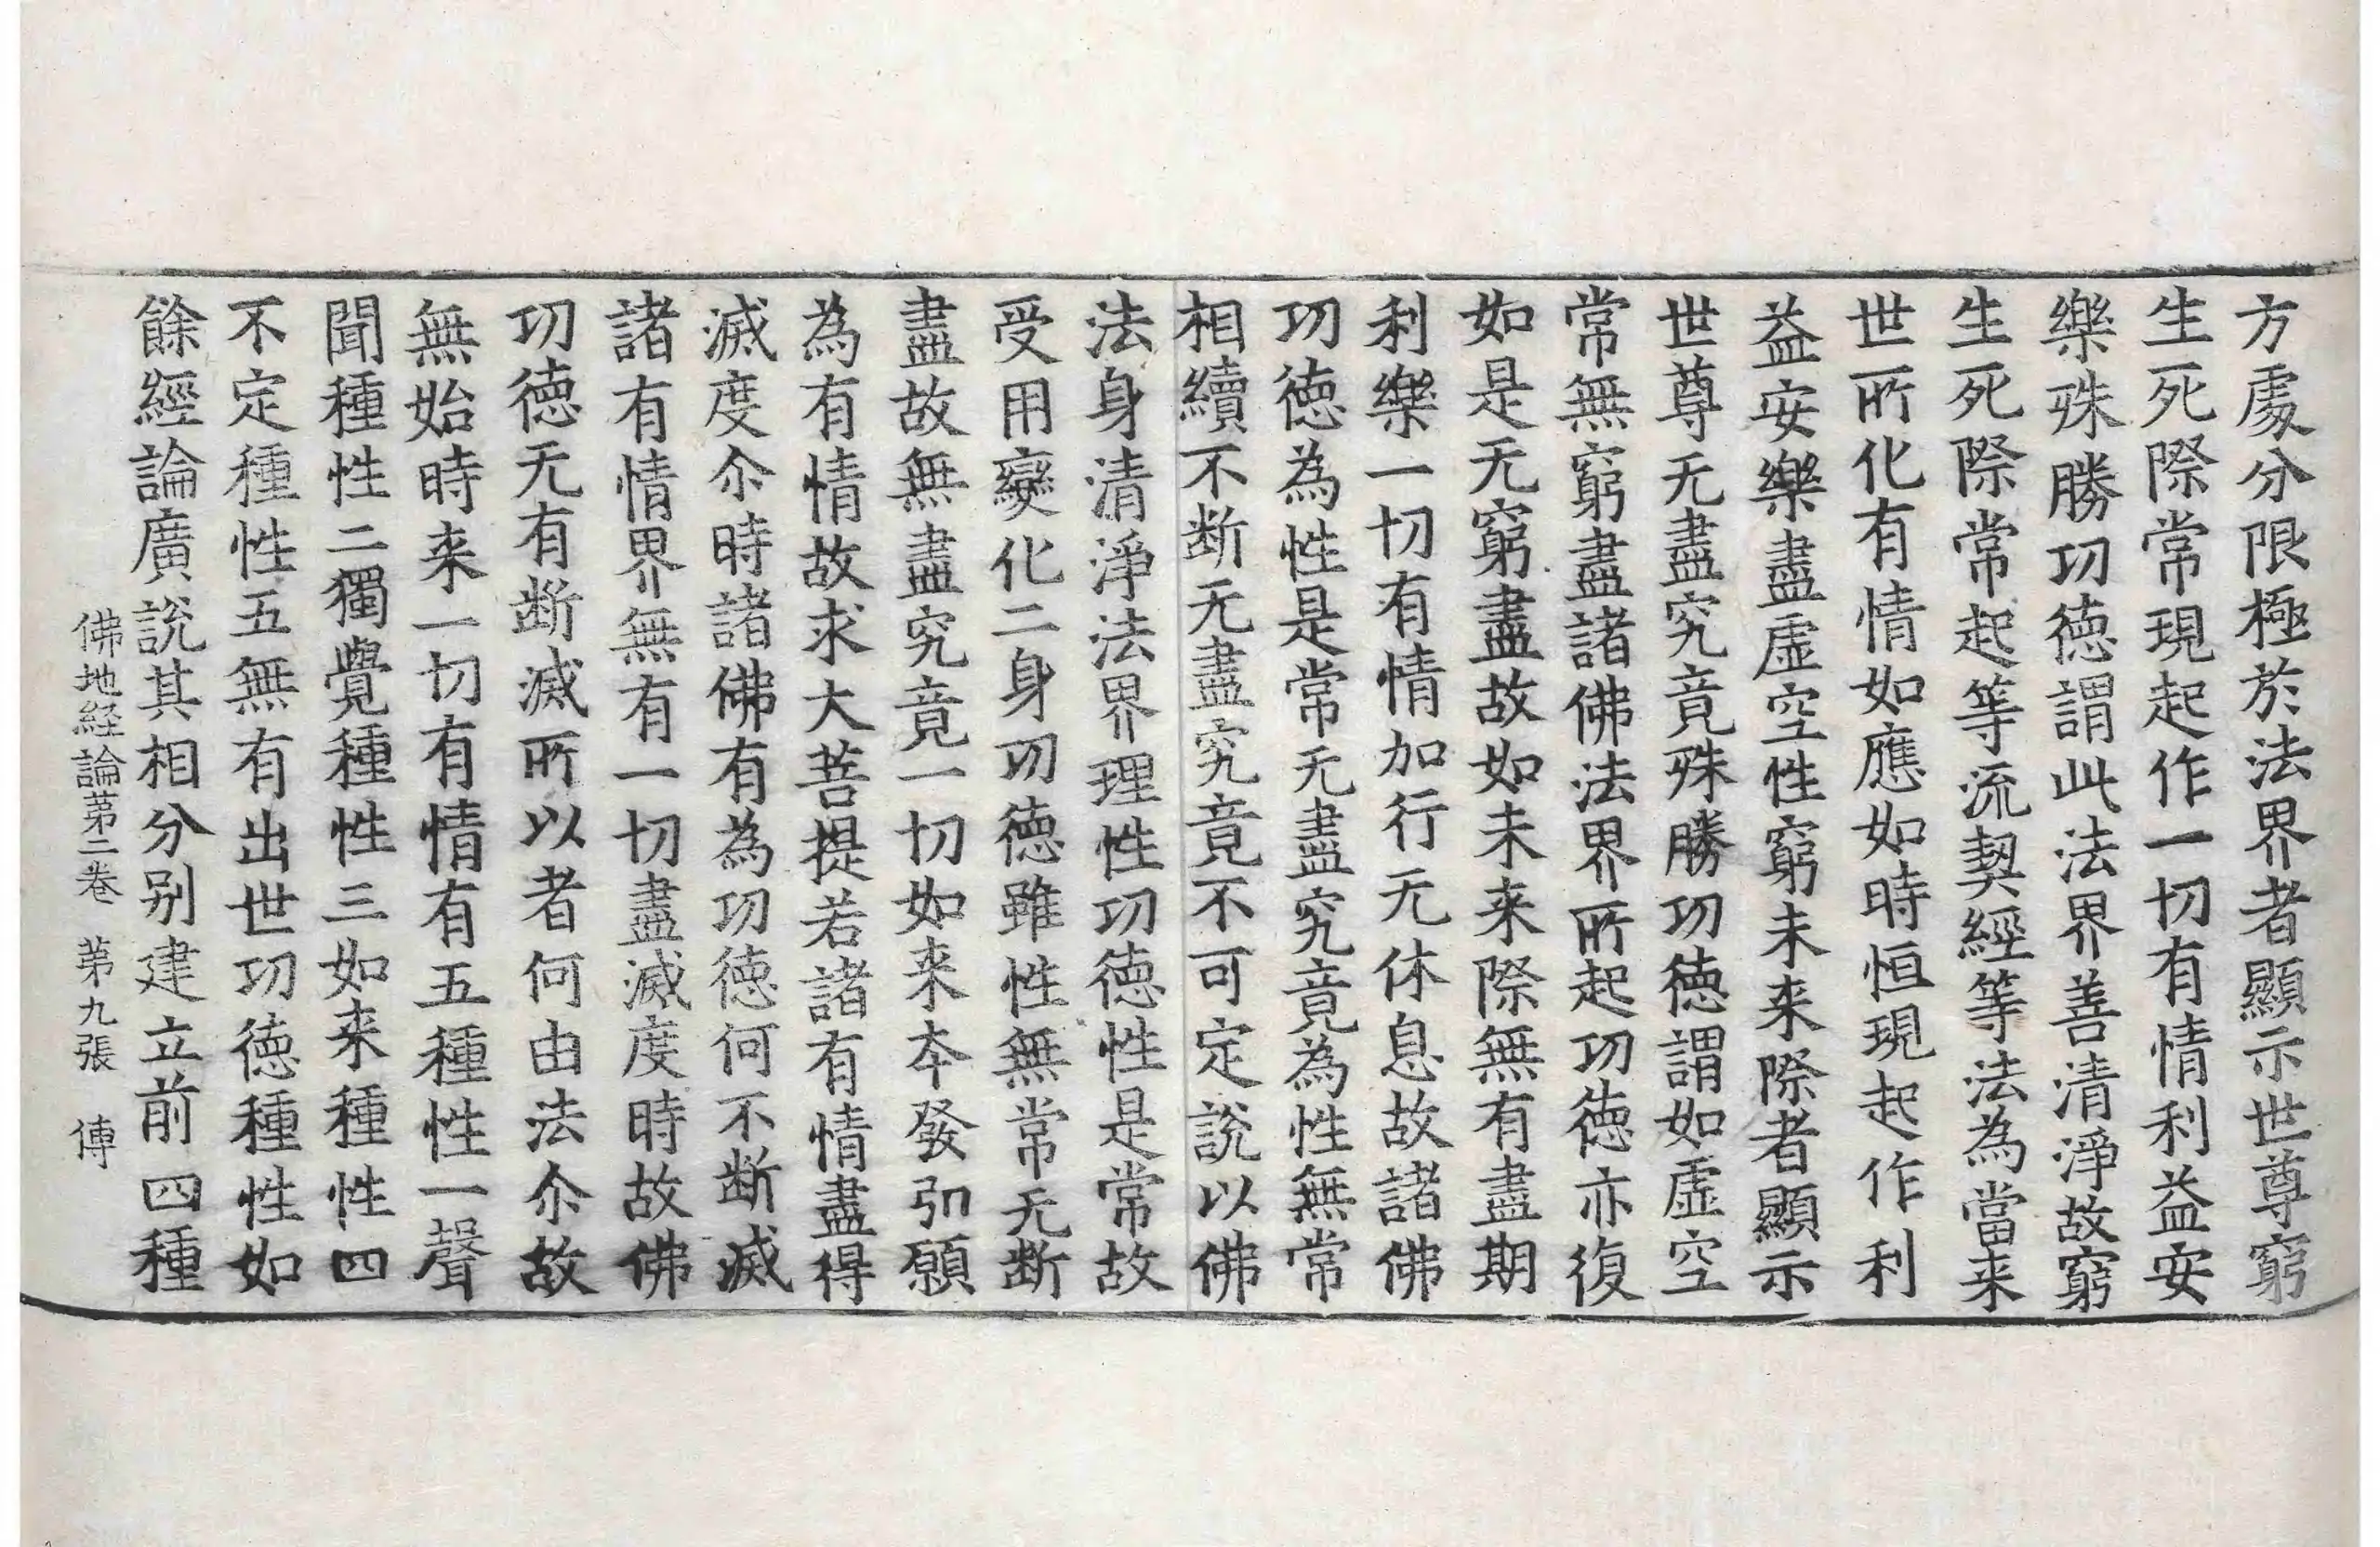 方處分限極於法界者顯示世尊窮
生死際常現起作一切有情利益安
樂殊勝㓛徳謂此法界善清淨故窮
生死際常起等流契經等法為當来
世所化有情如應如時恒現起作利
益安樂盡虛空性窮未来際者顯示
世尊无盡究竟殊勝㓛徳謂如虛空
常無窮盡諸佛法界所起㓛徳亦復
如是无窮盡故如未来際無有盡期
利樂一切有情加行无休息故諸佛
㓛徳為性是常无盡究竟為性無常
相續不断无盡究竟不可定說以佛
法身清淨法界理性㓛徳性是常故
受用變化二身㓛徳雖性無常无断
盡故無盡究竟一切如来夲發引願
為有情故求大菩提若諸有情盡得
滅度尒時諸佛有為㓛徳何不断滅
諸有情界無有一切盡滅度時故佛
㓛徳无有断滅所以者何由法尒故
無始時来一切有情有五種性一聲
聞種性二獨覺種性三如来種性四
不定種性五無有出世㓛徳種性如
餘經論廣說其相分别建立前四種
佛地経論苐二卷　苐九張　傳